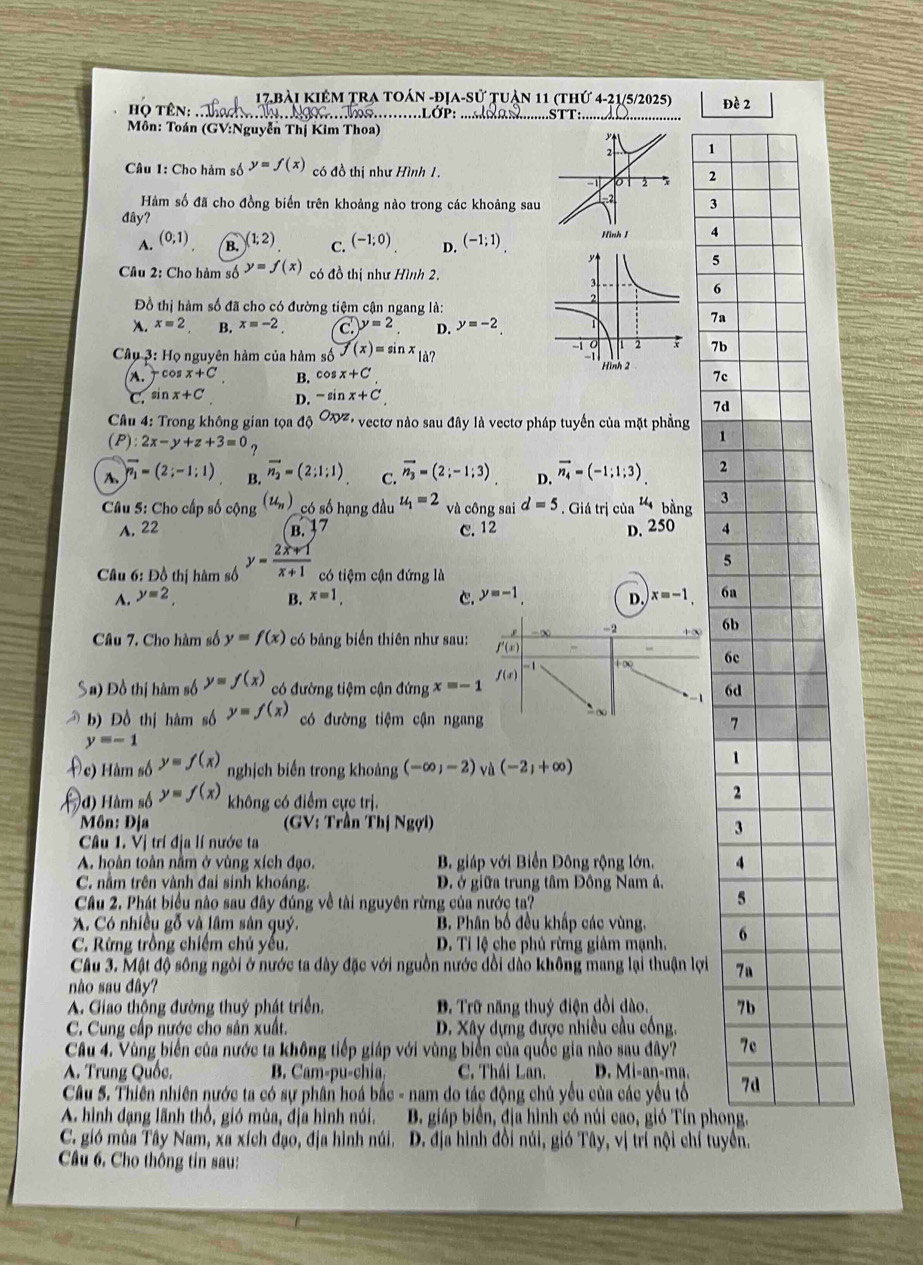 17.BÀI KIỂM TRA TOÁN -ĐỊA-SỬ TUẦN 11 (THỨ 4-21/5/2025)
Đề 2
HỌ TÊN: Thạch Thị Ngọc Thảo LỚP: STT: 10
Môn: Toán (GV:Nguyễn Thị Kim Thoa)
Câu 1: Cho hàm số y=f(x) có đồ thị như Hình 1.
Hàm số đã cho đồng biến trên khoảng nào trong các khoảng sau
đây?
A. (0;1). B. (1;2). C. (-1;0). D. (-1;1).
y
2
-1 O 1 2 x
-2
Hình 1
Câu 2: Cho hàm số y=f(x) có đồ thị như Hình 2.
Đồ thị hàm số đã cho có đường tiệm cận ngang là:
A. x=2. B. x=-2. C. y=2. D. y=-2.
y
3
2
1
-1 O 1 2 x
-1
Hình 2
Câu 3: Họ nguyên hàm của hàm số f(x)=sin x là?
A. -cos x+C. B. cos x+C.
C. sin x+C. D. -sin x+C.
Câu 4: Trong không gian tọa độ Oxyz, vectơ nào sau đây là vectơ pháp tuyến của mặt phẳng
(P):2x-y+z+3=0?
A. n₁=(2;-1;1). B. n₂=(2;1;1). C. n₃=(2;-1;3). D. n₄=(-1;1;3).
Câu 5: Cho cấp số cộng (uₙ) có số hạng đầu u₁=2 và công sai d=5. Giá trị của u₄ bằng
A. 22 B. 17 C. 12 D. 250
Câu 6: Đồ thị hàm số y=(2x+1)/(x+1) có tiệm cận đứng là
A. y=2. B. x=1. C. y=-1. D. x=-1.
Câu 7. Cho hàm số y=f(x) có bảng biến thiên như sau:
x -∞ -2 +∞
f'(x) - -
f(x) -1 +∞
-∞ -1
S a) Đồ thị hàm số y=f(x) có đường tiệm cận đứng x=-1
b) Đồ thị hàm số y=f(x) có đường tiệm cận ngang
y=-1
c) Hàm số y=f(x) nghịch biến trong khoảng (-∞;-2) và (-2;+∞)
d) Hàm số y=f(x) không có điểm cực trị.
Môn: Địa (GV: Trần Thị Ngợi)
Câu 1. Vị trí địa lí nước ta
A. hoàn toàn nằm ở vùng xích đạo. B. giáp với Biển Đông rộng lớn.
C. nằm trên vành đai sinh khoáng. D. ở giữa trung tâm Đông Nam á.
Câu 2. Phát biểu nào sau đây đúng về tài nguyên rừng của nước ta?
A. Có nhiều gỗ và lâm sản quý. B. Phân bố đều khắp các vùng.
C. Rừng trồng chiếm chủ yếu. D. Tỉ lệ che phủ rừng giảm mạnh.
Câu 3. Mật độ sông ngòi ở nước ta dày đặc với nguồn nước dồi dào không mang lại thuận lợi
nào sau đây?
A. Giao thông đường thuỷ phát triển. B. Trữ năng thuỷ điện dồi dào.
C. Cung cấp nước cho sản xuất. D. Xây dựng được nhiều cầu cống.
Câu 4. Vùng biển của nước ta không tiếp giáp với vùng biển của quốc gia nào sau đây?
A. Trung Quốc. B. Cam-pu-chia. C. Thái Lan. D. Mi-an-ma.
Câu 5. Thiên nhiên nước ta có sự phân hoá bắc - nam do tác động chủ yếu của các yếu tố
A. hình dạng lãnh thổ, gió mùa, địa hình núi. B. giáp biển, địa hình có núi cao, gió Tín phong.
C. gió mùa Tây Nam, xa xích đạo, địa hình núi. D. địa hình đồi núi, gió Tây, vị trí nội chí tuyến.
Câu 6. Cho thông tin sau:
1
2
3
4
5
6
7a
7b
7c
7d
1
2
3
4
5
6a
6b
6c
6d
7
1
2
3
4
5
6
7a
7b
7c
7d